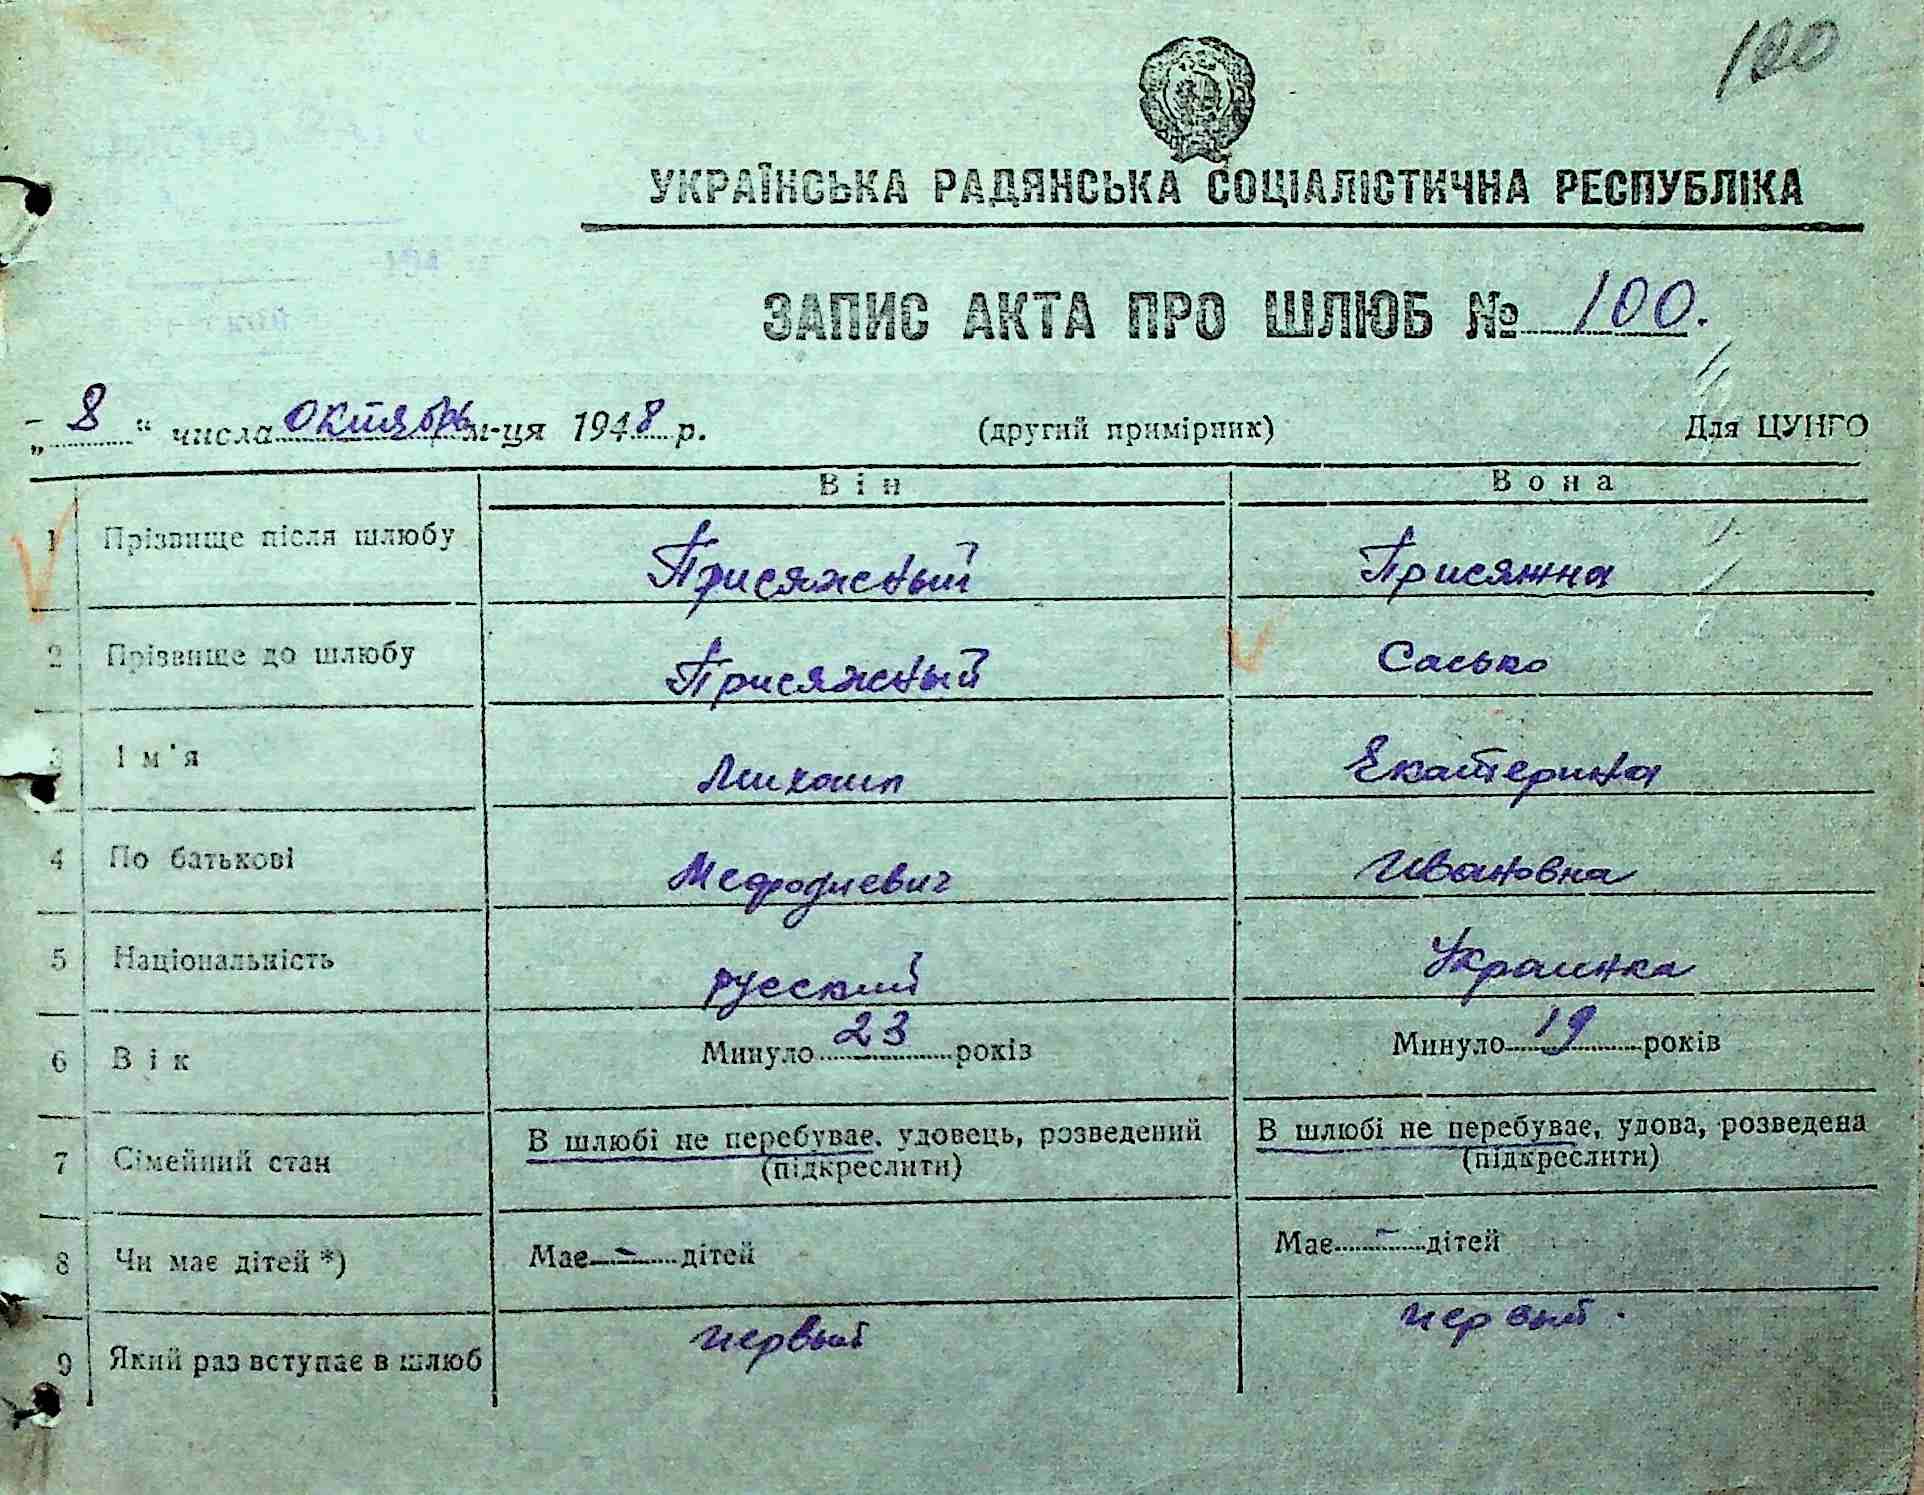 100
УКРАЇНСЬКА РАДЯНСЬКА СОЦІАЛІСТИЧНА РЕСПУБЛІКА
ЗАПИС АКТА ПРО ШЛЮБ № 100.
„8“ числа октябрь м-ця 1948 р. (другий примірник) Для ЦУНГО
Він Вона
1 Прізвище після шлюбу Присяжный Присяжна
2 Прізвище до шлюбу Присяжный Сасько
3 Ім'я Михаил Екатерина
4 По батькові Мефодиевич Ивановна
5 Національність русский Украинка
6 Вік Минуло 23 років Минуло 19 років
7 Сімейний стан В шлюбі не перебуває, удовець, розведений (підкреслити) В шлюбі не перебуває, удова, розведена (підкреслити)
8 Чи має дітей *) Має - дітей Має - дітей
9 Який раз вступає в шлюб первый первый.